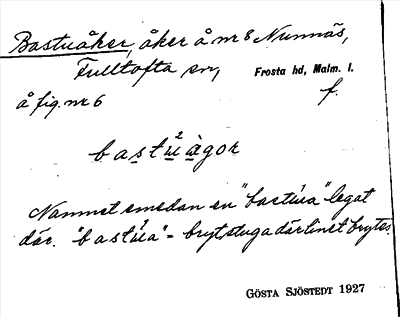 Bastuåker, åker å nr 8 Nunnäs,
Fulltofta sn, Frosta hd, Malm. l.
å fig. nr 6 f.
bastu²àgor
Namnet emedan en "bastua" legat
där. "bastua" = brytstuga där linet brytes.
GÖSTA SJÖSTEDT 1927